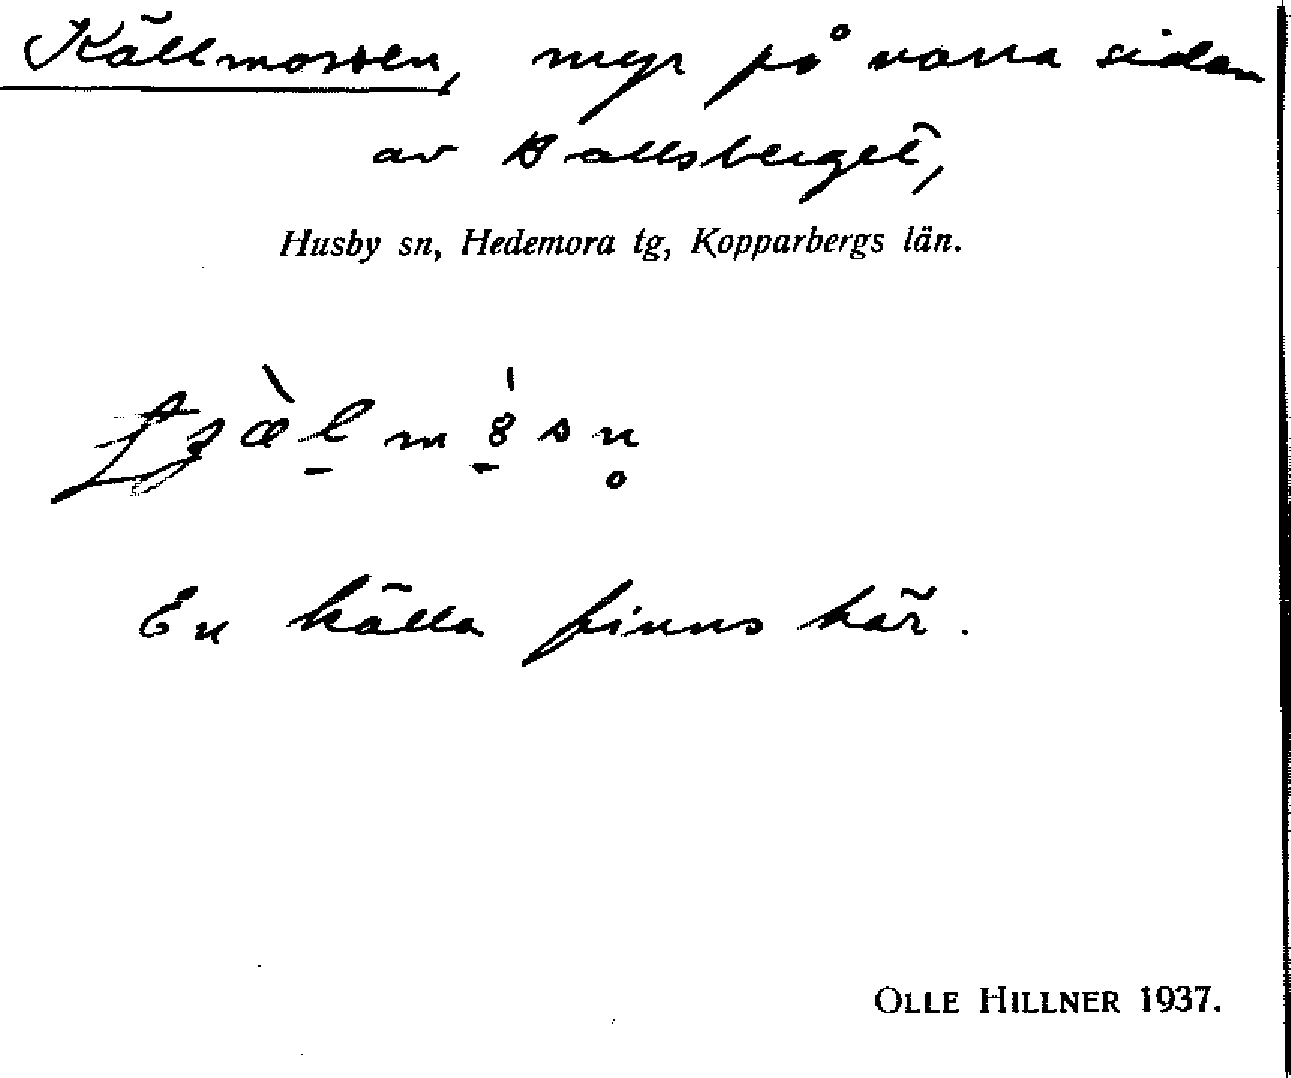 Källmossen, myr på norra sidan
av Ballsberget,
Husby sn, Hedemora tg, Kopparbergs län.
En källa finns här.
OLLE HILLNER 1937.